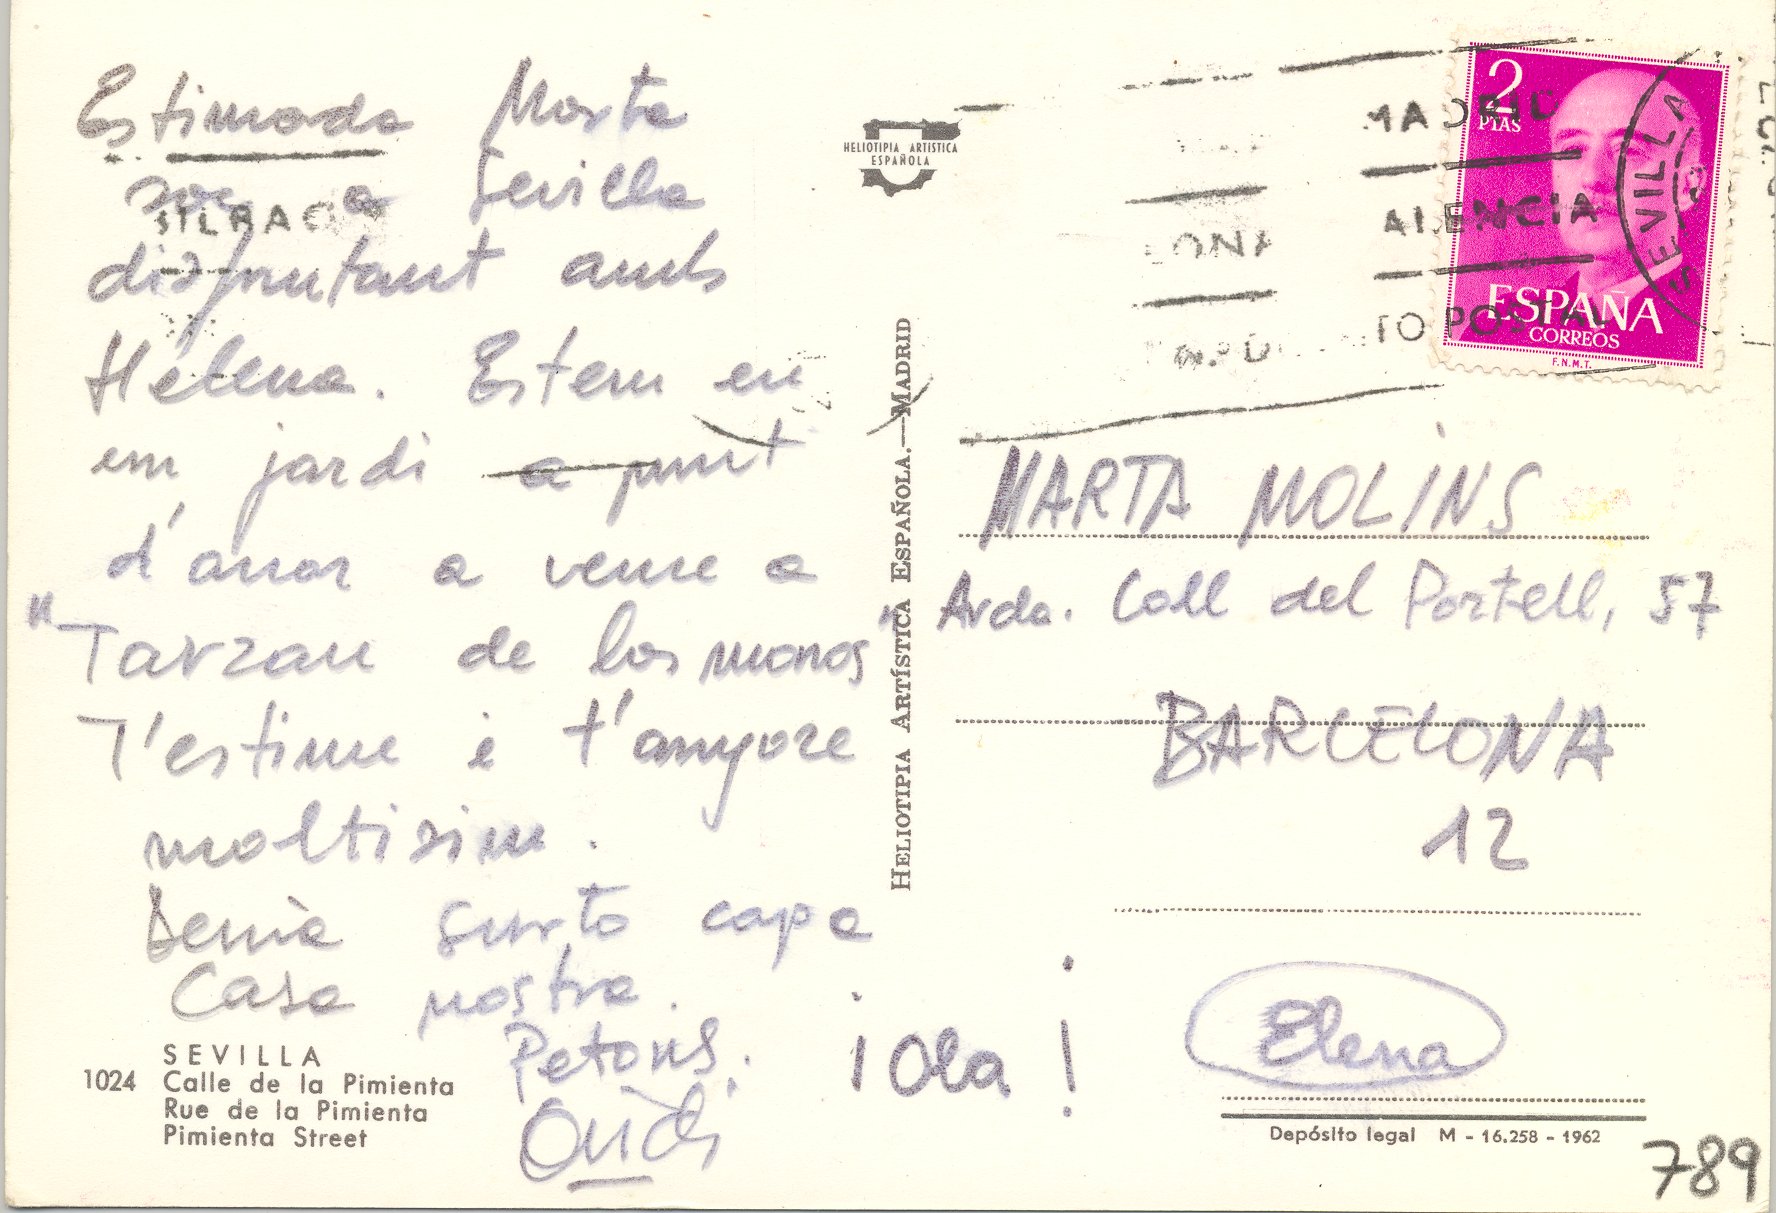 Estimada Marta
soc a Sevilla
disfrutant amb
Helena. Estem en
un jardi a punt
d'anar a veure a
"Tarzan de los monos"
T'estime i t'anyore
moltisim.
Demà surto cap a
Casa nostra.
Petons.
Ovidi
¡Ola!
SEVILLA
1024 Calle de la Pimienta
Rue de la Pimienta
Pimienta Street
HELIOTIPIA ARTISTICA
ESPAÑOLA
HELIOTIPIA ARTÍSTICA ESPAÑOLA.—MADRID
BILBAO
MADRID
ALENCIA
LONA
TO POSTAL
SEVILLA
2
PTAS
ESPAÑA
CORREOS
F.N.M.T.
MARTA MOLINS
Avda. Coll del Portell, 57
BARCELONA
12
Elena
Depósito legal M - 16.258 - 1962
789